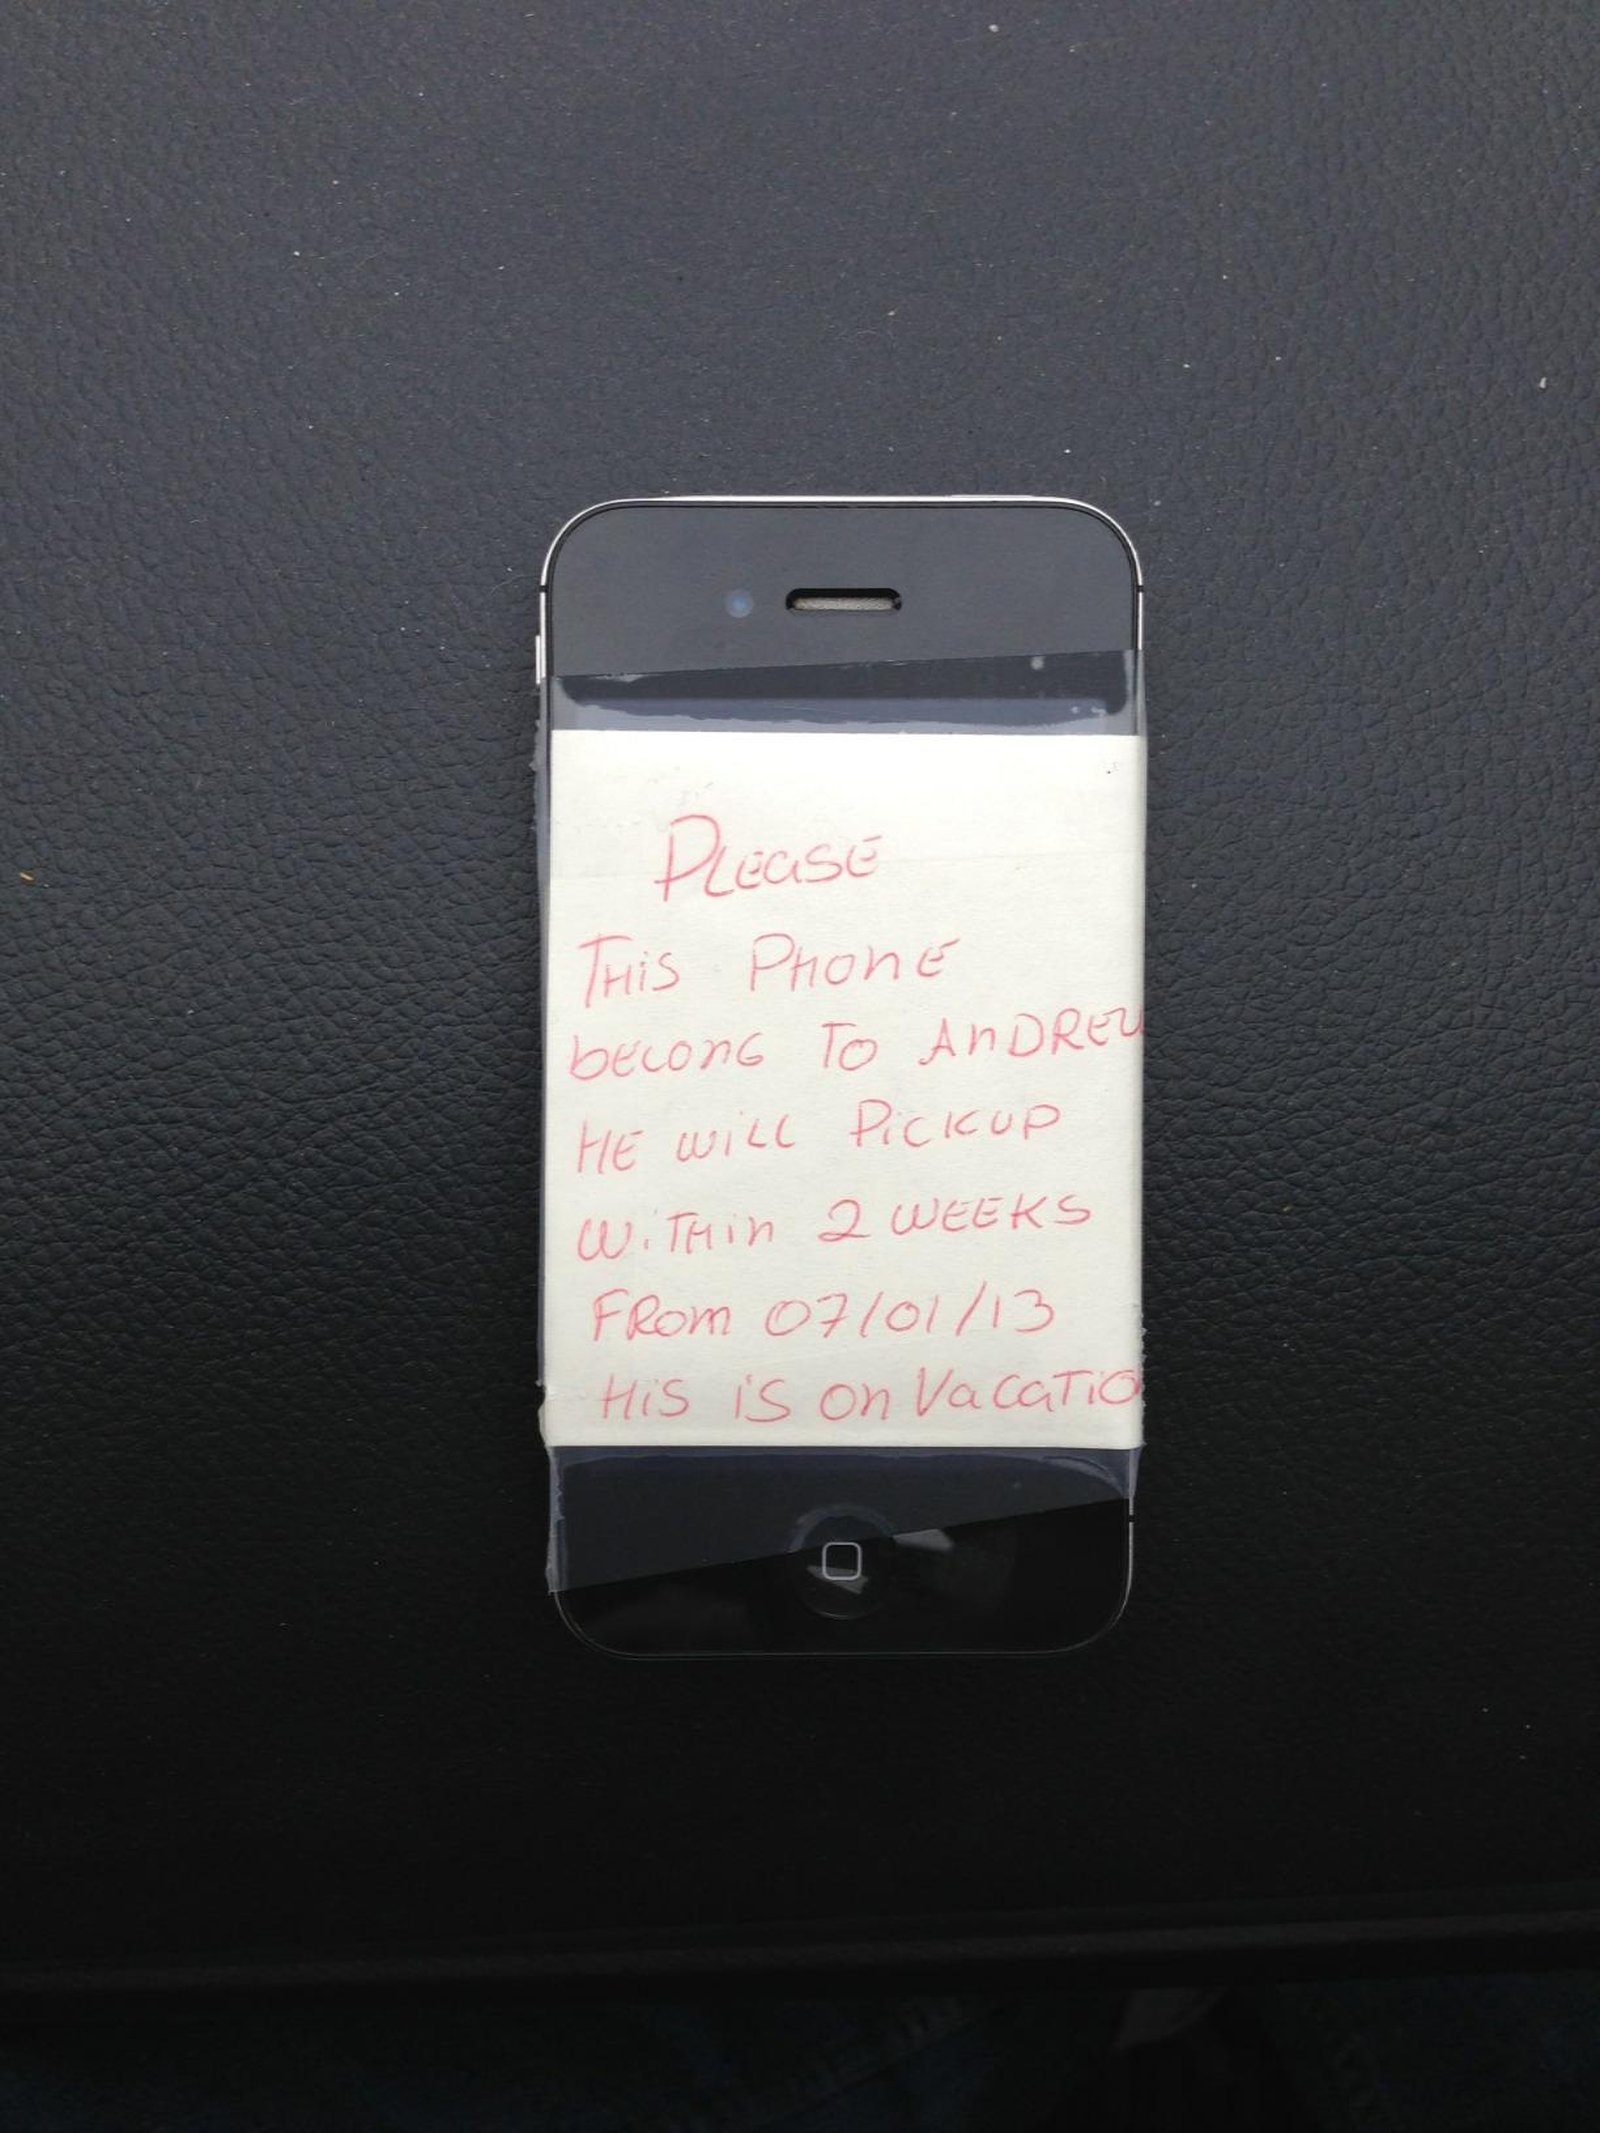 Please
This Phone
belong To AnDREW
HE will Pickup
within 2 weeks
From 07/01/13
His is on Vacatio